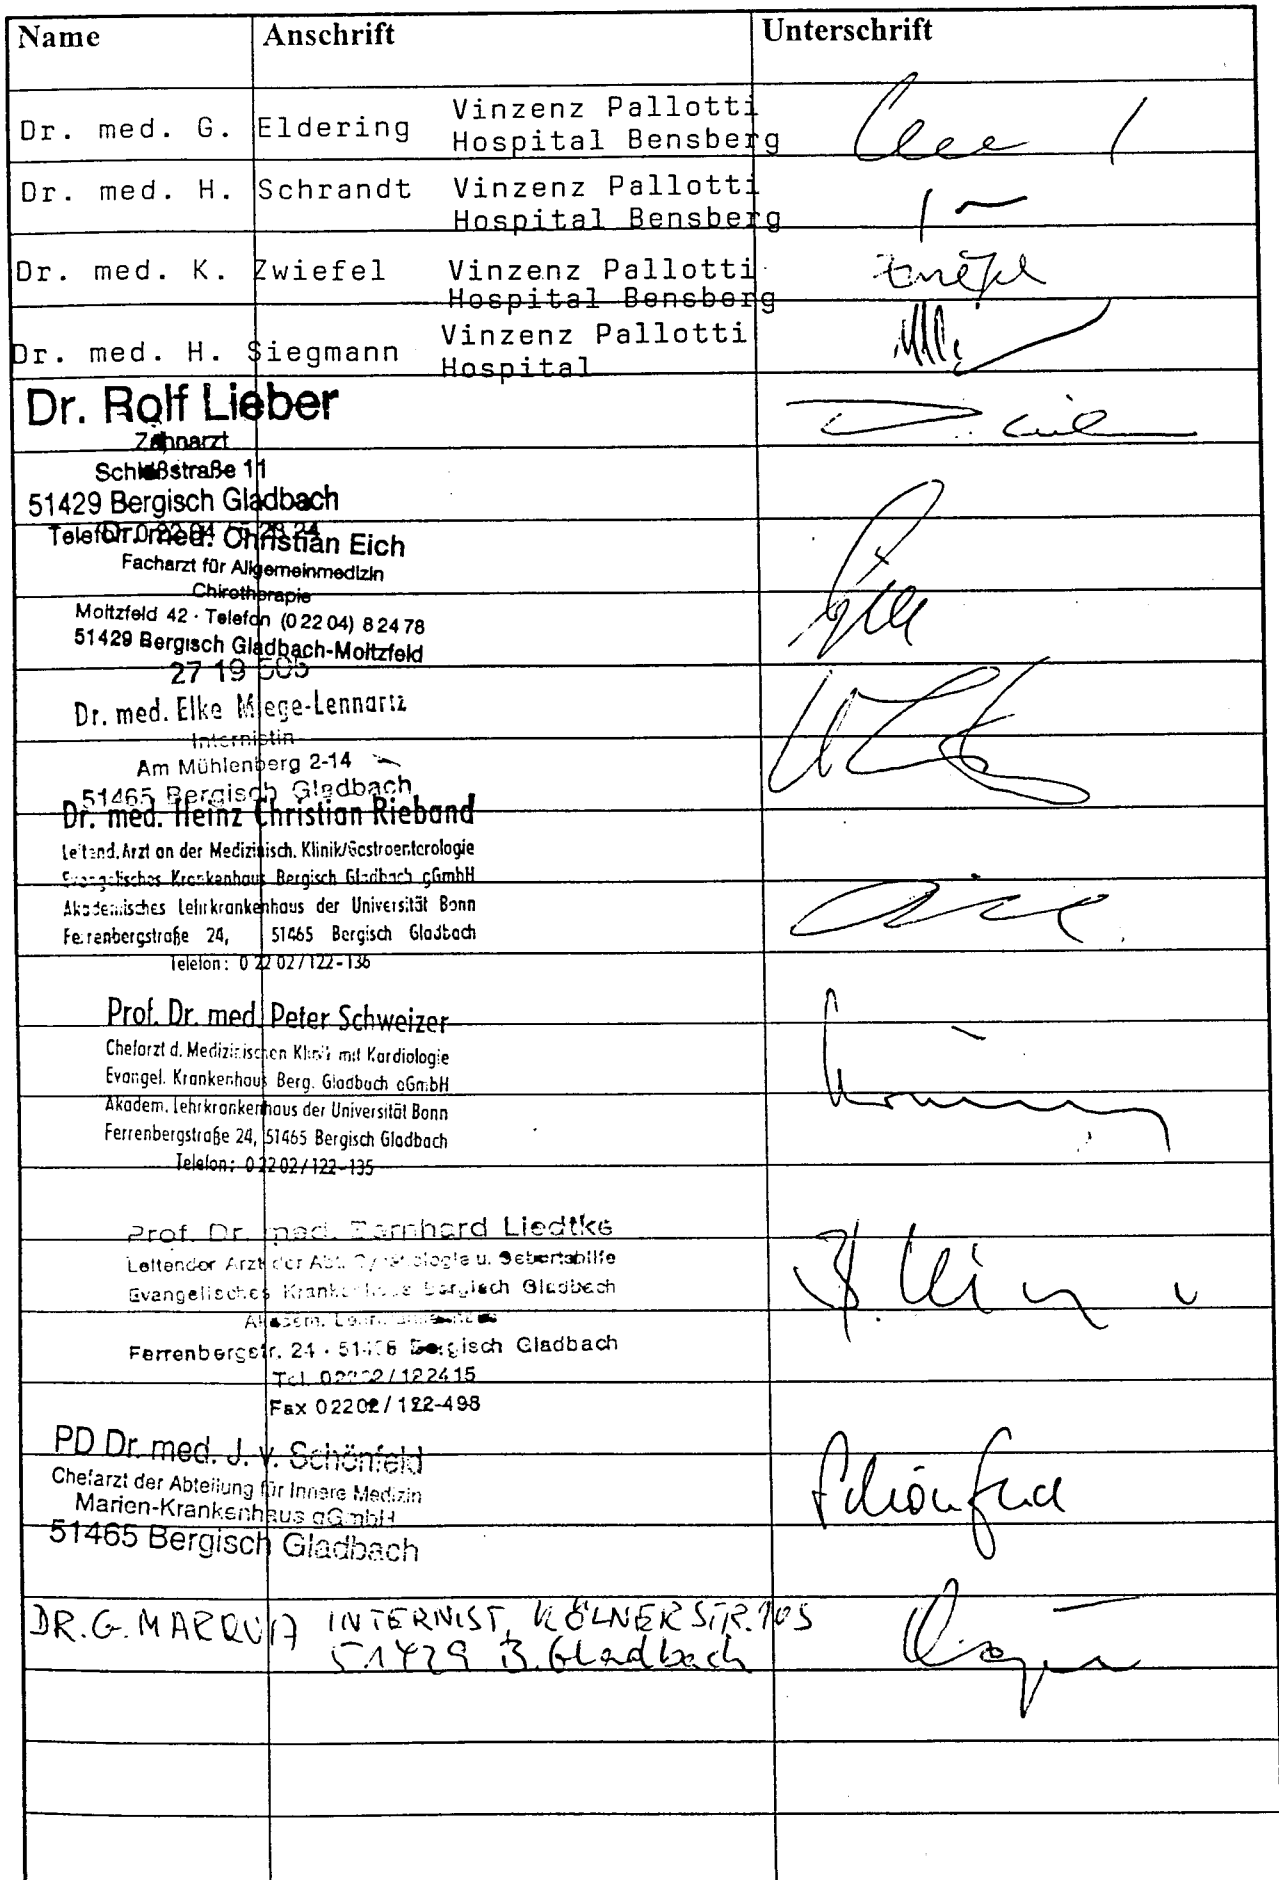 Name Anschrift Unterschrift
Dr. med. G. Eldering Vinzenz Pallotti
Hospital Bensberg
Dr. med. H. Schrandt Vinzenz Pallotti
Hospital Bensberg
Dr. med. K. Zwiefel Vinzenz Pallotti
Hospital Bensberg
Dr. med. H. Siegmann Vinzenz Pallotti
Hospital
Dr. Rolf Lieber
Zahnarzt
Schloßstraße 11
51429 Bergisch Gladbach
Telefon
Dr. med. Christian Eich
Facharzt für Allgemeinmedizin
Chirotherapie
Moitzfeld 42 · Telefon (0 22 04) 8 24 78
51429 Bergisch Gladbach-Moitzfeld
27 19
Dr. med. Elke Miege-Lennartz
Internistin
Am Mühlenberg 2-14
51465 Bergisch Gladbach
Dr. med. Heinz Christian Rieband
Leitend. Arzt an der Medizinisch. Klinik/Gastroenterologie
Evangelisches Krankenhaus Bergisch Gladbach gGmbH
Akademisches Lehrkrankenhaus der Universität Bonn
Ferrenbergstraße 24, 51465 Bergisch Gladbach
Telefon: 0 22 02/122-136
Prof. Dr. med. Peter Schweizer
Chefarzt d. Medizinischen Klinik mit Kardiologie
Evangel. Krankenhaus Berg. Gladbach gGmbH
Akadem. Lehrkrankenhaus der Universität Bonn
Ferrenbergstraße 24, 51465 Bergisch Gladbach
Telefon: 0 22 02/122-135
Prof. Dr. med. Liedtke
Leitender Arzt der Abt. Gynäkologie u. Geburtshilfe
Evangelisches Krankenhaus Bergisch Gladbach
Akadem.
Ferrenbergstr. 24 · Bergisch Gladbach
Tel. 02202/122415
Fax 02202/122-498
PD Dr. med. J. v. Schönfeld Schönfeld
Chefarzt der Abteilung für Innere Medizin
Marien-Krankenhaus gGmbH
51465 Bergisch Gladbach
DR. G. INTERNIST, KÖLNER STR. 105
51429 B. Gladbach